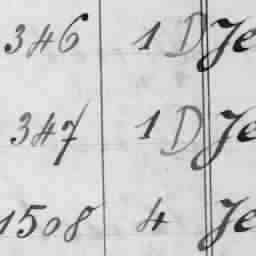 346 1 D Je
347 1 D Je
1508 4 Je